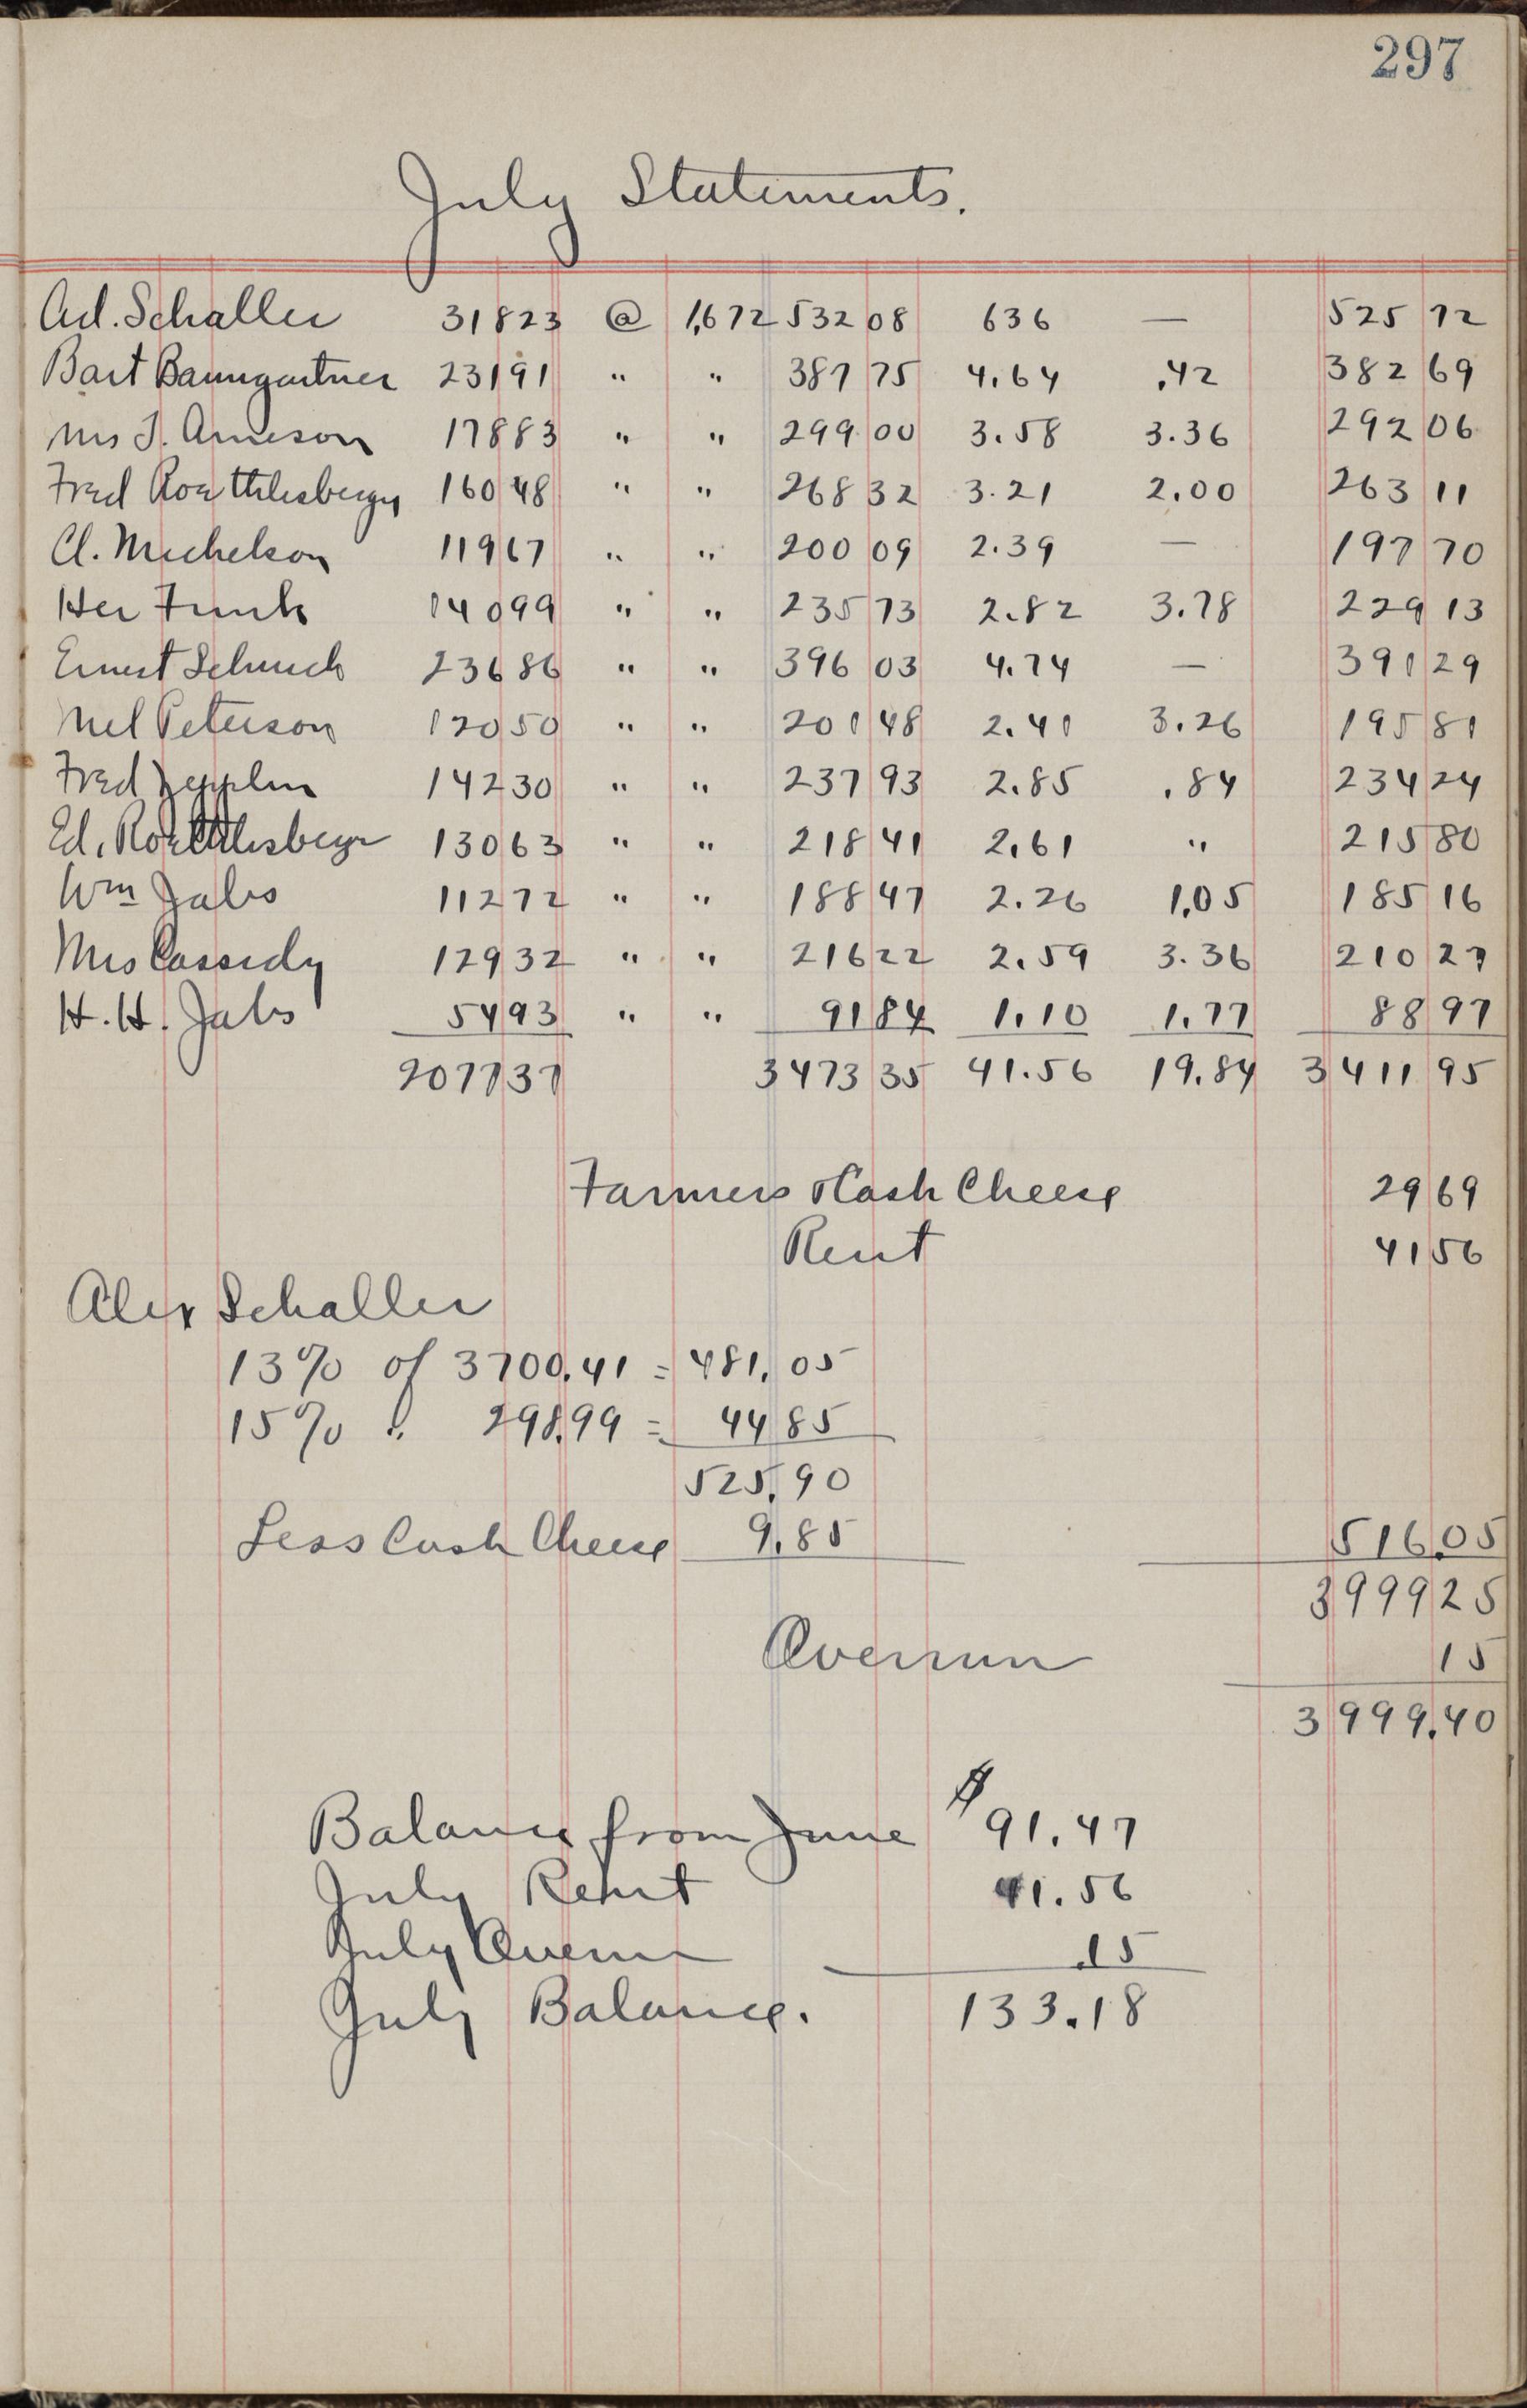 297
July Statements.
Ad. Schaller 31823 @ 1,672 532 08 636 — 525 72
Bart Baumgartner 23191 " " 387 75 4.64 .42 382 69
Mrs J. Arneson 17883 " " 299 00 3.58 3.36 292 06
Fred Roethlisberger 16048 " " 268 32 3.21 2.00 263 11
Cl. Michelson 11967 " " 200 09 2.39 — 197 70
Her Funk 14099 " " 235 73 2.82 3.78 229 13
Ernest Schuch 23686 " " 396 03 4.74 — 391 29
Mel Peterson 12050 " " 201 48 2.41 3.26 195 81
Fred Zepplin 14230 " " 237 93 2.85 .84 234 24
Ed. Roethlisberger 13063 " " 218 41 2.61 " 215 80
Wm Jabs 11272 " " 188 47 2.26 1.05 185 16
Mrs Cassidy 12932 " " 216 22 2.59 3.36 210 27
H. H. Jabs 5493 " " 91 84 1.10 1.77 88 97
207737 3473 35 41.56 19.84 3411 95
Farmers Cash Cheese 29 69
Rent 41 56
Alex Schaller
13% of 3700.41 = 481.05
15% " 298.99 = 44 85
525.90
Less Cash Cheese 9.85 516.05
3999 25
Overrun 15
3999.40
Balance from June $91.47
July Rent 41.56
July Overrun .15
July Balance. 133.18